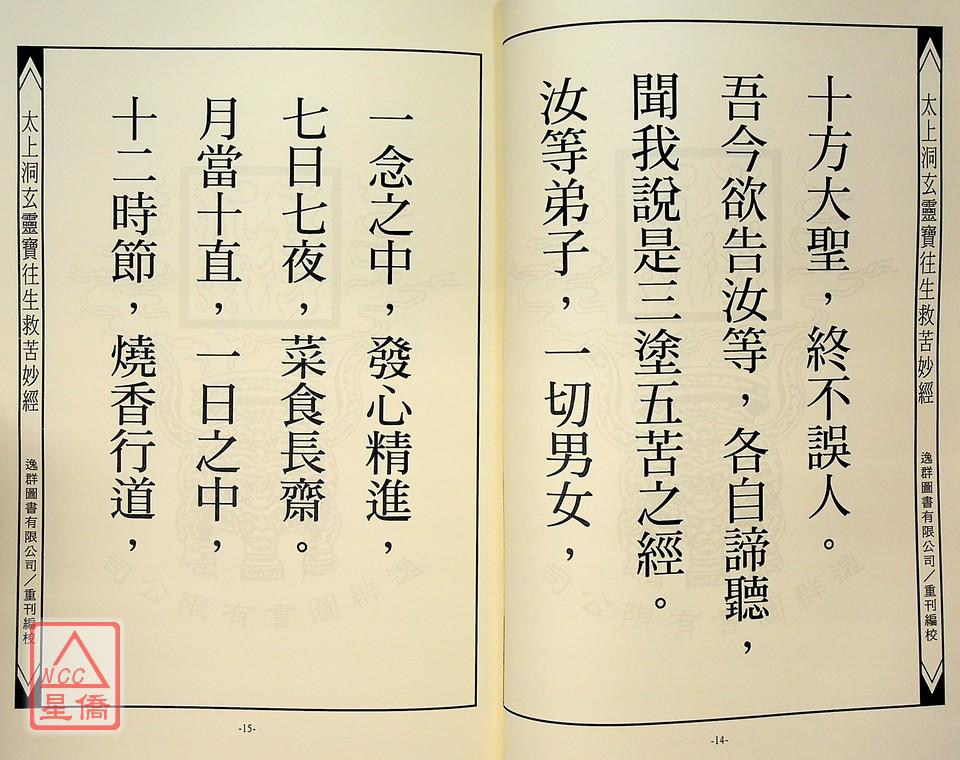 太上洞玄靈寶往生救苦妙經
逸群圖書有限公司／重刊編校
十方大聖，終不誤人。
吾今欲告汝等，各自諦聽，
聞我說是三塗五苦之經。
汝等弟子，一切男女，
逸群圖書有限公司
-14-
一念之中，發心精進，
七日七夜，菜食長齋。
月當十直，一日之中，
十二時節，燒香行道，
逸群圖書有限公司
太上洞玄靈寶往生救苦妙經
逸群圖書有限公司／重刊編校
-15-
NCC
星僑